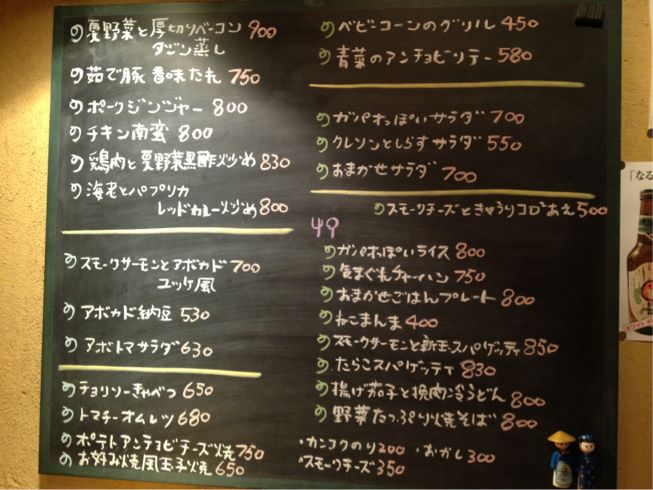 の 夏野菜と厚切りベーコン 900
タジン蒸し
の 茹で豚 香味たれ 750
の ポークジンジャー 800
の チキン南蛮 800
の 鶏肉と夏野菜黒酢炒め 830
の 海老とパプリカ
レッドカレー炒め 800
の スモークサーモンとアボカド 700
ユッケ風
の アボカド納豆 530
の アボトマサラダ 630
の チョリソーきゃべつ 650
の トマチーオムレツ 680
の ポテトアンチョビチーズ焼 750
の お好み焼風玉子焼 650
の ベビーコーンのグリル 450
の 青菜のアンチョビソテー 580
の ガパオっぽいサラダ 700
の クレソンとしらすサラダ 550
の おまかせサラダ 700
の スモークチーズときゅうりコロコロあえ 500
の ガパオっぽいライス 800
の 気まぐれチャーハン 750
の おまかせごはんプレート 800
の ねこまんま 400
の スモークサーモンと新玉スパゲッティ 850
の たらこスパゲッティ 830
の 揚げ茄子と挽肉冷うどん 800
の 野菜たっぷり焼そば 800
・カンコクのり 200 ・おかし 300
・スモークチーズ 350
「なる